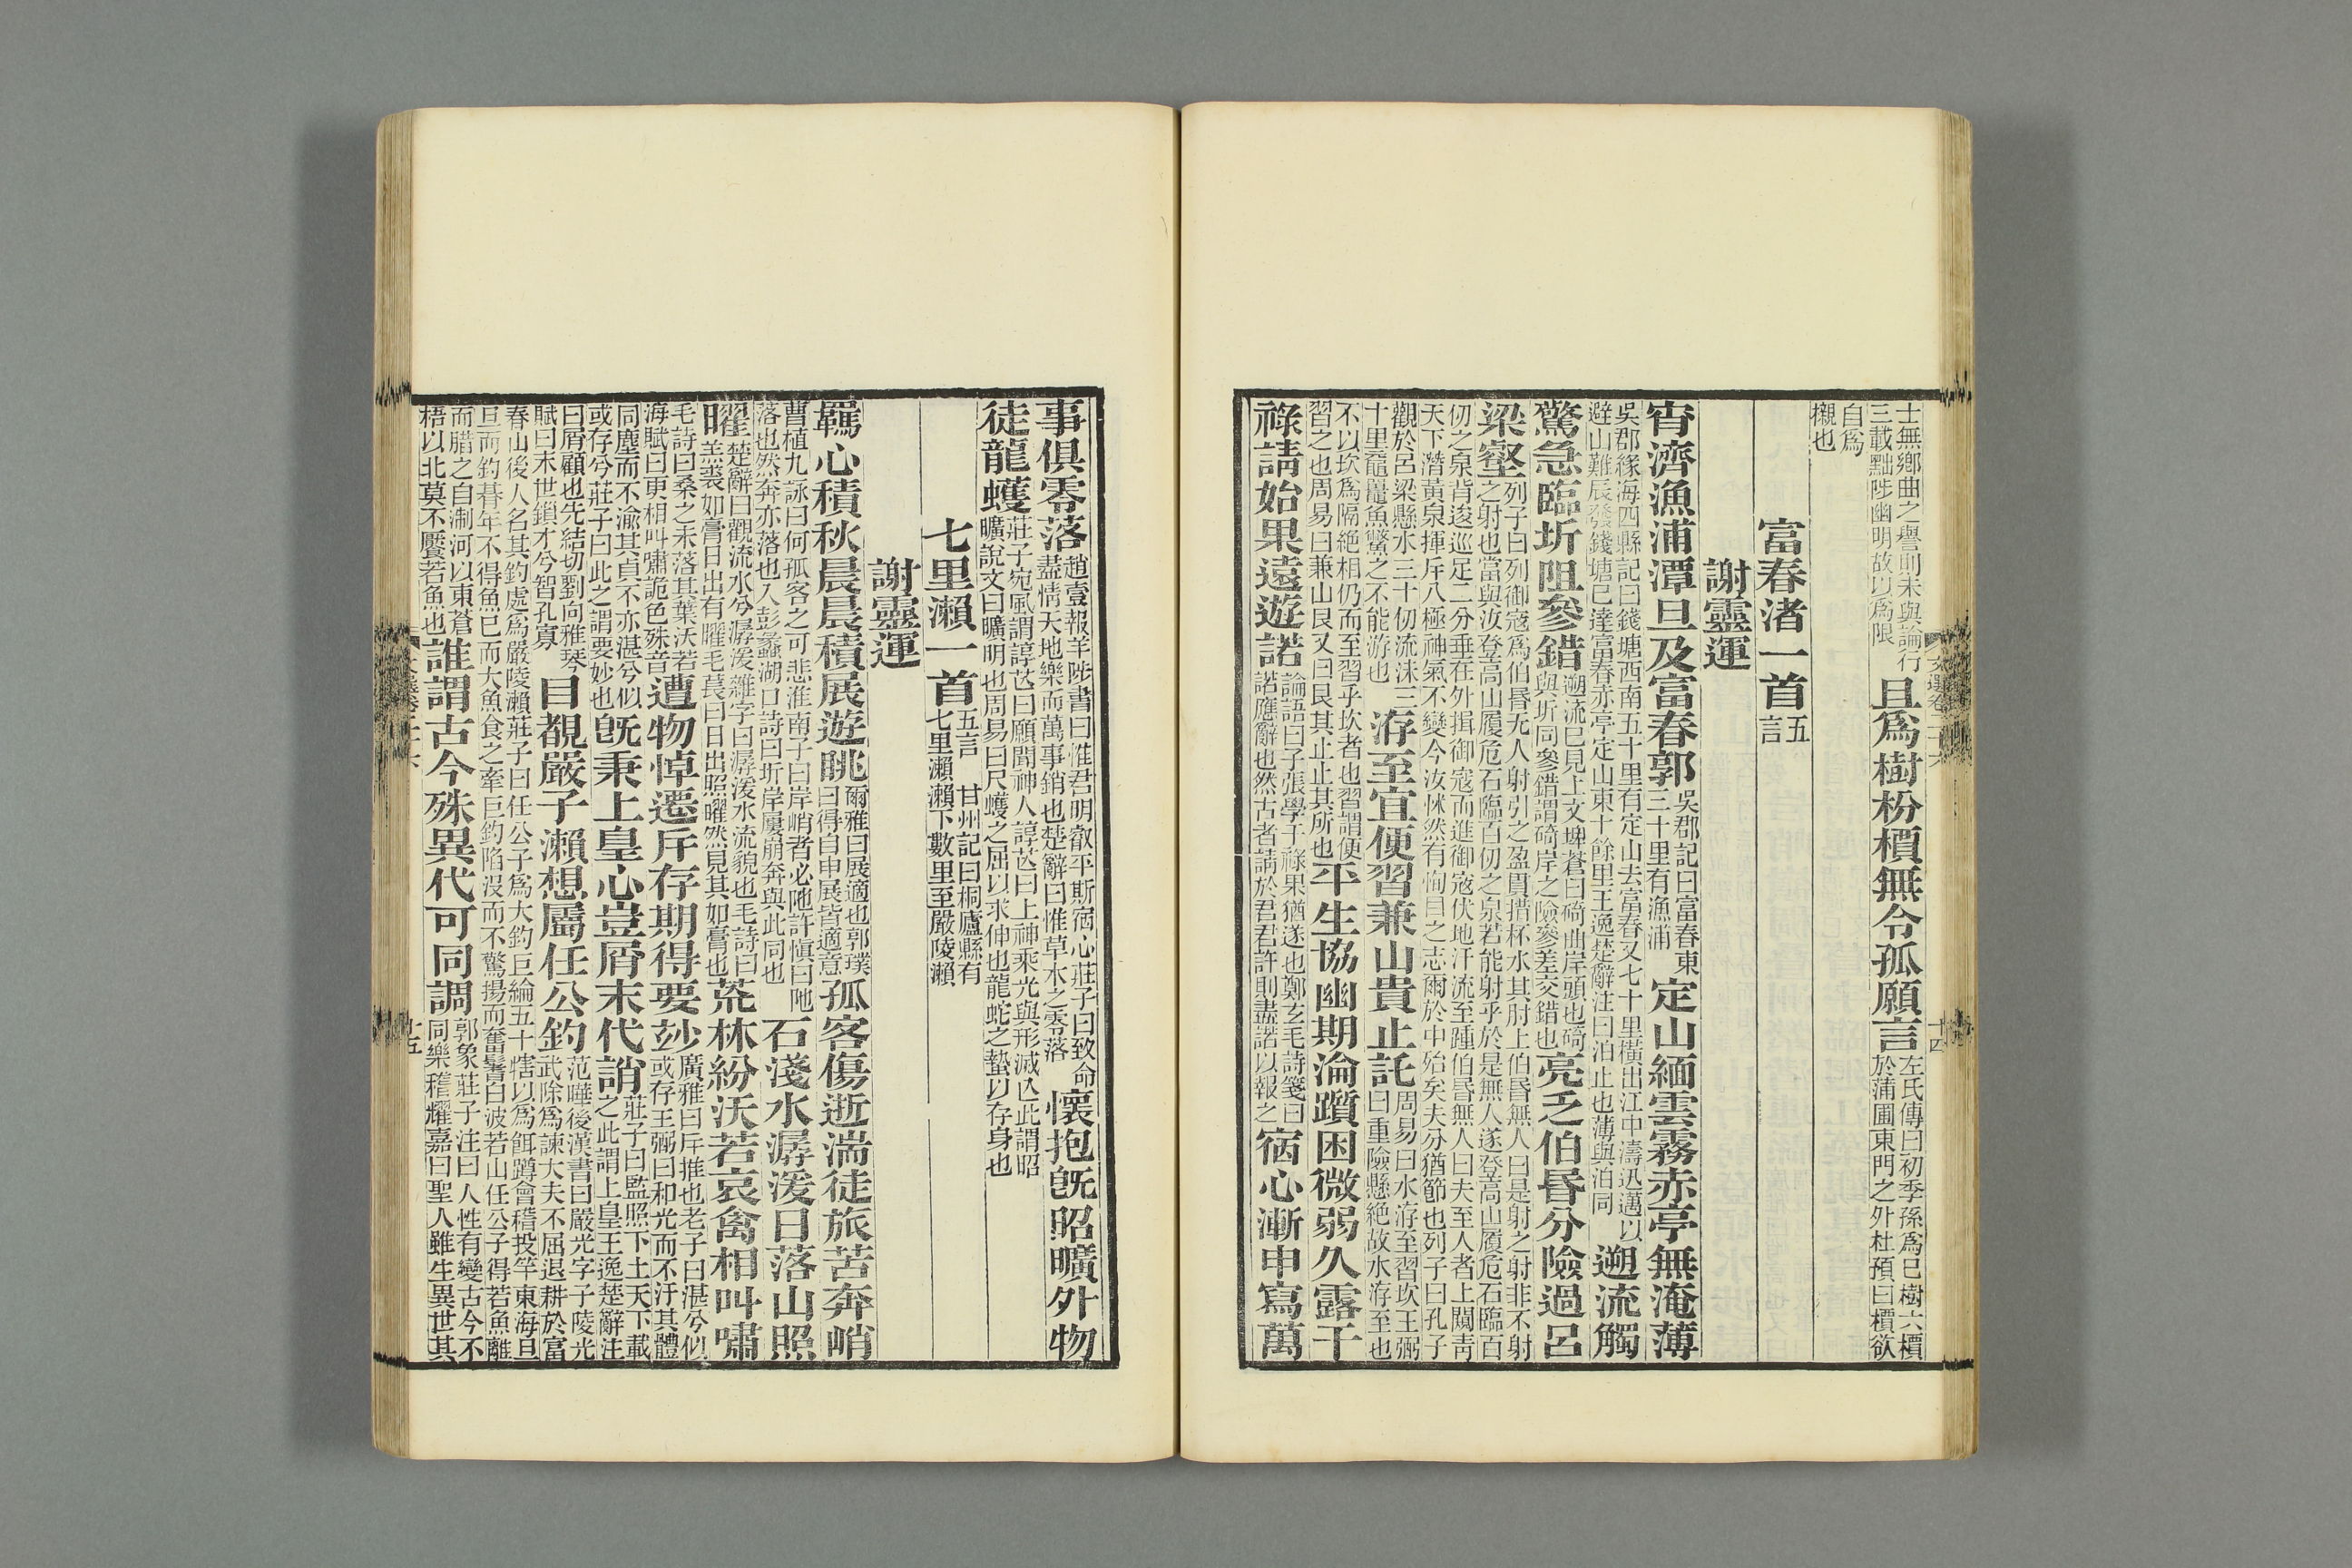 士無鄉曲之譽則未與論行
三載黜陟幽明故以爲限
且爲樹枌檟無令孤願言
左氏傳曰初季孫爲己樹六檟
於蒲圃東門之外杜預曰檟欲
自爲
櫬也
富春渚一首
五言
謝靈運
宵濟漁浦潭旦及富春郭
吳郡記曰富春東
三十里有漁浦
定山緬雲霧赤亭無淹薄
吳郡緣海四縣記曰錢塘西南五十里有定山去富春又七十里橫出江中濤迅邁以
避山難辰發錢塘已達富春赤亭定山東十餘里王逸楚辭注曰泊止也薄與泊同
遡流觸
驚急臨圻阻參錯
遡流已見上文埤蒼曰碕曲岸頭也碕
與圻同參錯謂碕岸之險參差交錯也
亮乏伯昏分險過呂
梁壑
列子曰列御寇爲伯昏无人射引之盈貫措杯水其肘上伯昏無人曰是射之射非不射
之射也當與汝登高山履危石臨百仞之泉若能射乎於是無人遂登高山履危石臨百
仞之泉背逡巡足二分垂在外揖御寇而進御寇伏地汗流至踵伯昏無人曰夫至人者上闚靑
天下潛黃泉揮斥八極神氣不變今汝怵然有恂目之志爾於中殆矣夫分猶節也列子曰孔子
觀於呂梁懸水三十仞流沫三
十里黿鼉魚鱉之不能游也
洊至宜便習兼山貴止託
周易曰水洊至習坎王弼
曰重險懸絕故水洊至也
不以坎爲隔絕相仍而至習乎坎者也習謂便
習之也周易曰兼山艮又曰艮其止止其所也
平生協幽期淪躓困微弱久露干
祿請始果遠遊諾
論語曰子張學干祿果猶遂也鄭玄毛詩箋曰
諾應辭也然古者請於君君許則書諾以報之
宿心漸申寫萬
事俱零落
趙壹報羊陟書曰惟君明叡平斯宿心莊子曰致命
盡情天地樂而萬事銷也楚辭曰惟草木之零落
懷抱旣昭曠外物
徒龍蠖
莊子宛風謂諄芒曰願聞神人諄芒曰上神乘光與形滅亡此謂昭
曠說文曰曠明也周易曰尺蠖之屈以求伸也龍蛇之蟄以存身也
七里瀨一首
五言　甘州記曰桐廬縣有
七里瀨瀨下數里至嚴陵瀨
謝靈運
羈心積秋晨晨積展遊眺
爾雅曰展適也郭璞
曰得自申展皆適意
孤客傷逝湍徒旅苦奔峭
曹植九詠曰何孤客之可悲淮南子曰岸峭者必阤許愼曰阤
落也然奔亦落也入彭蠡湖口詩曰圻岸屢崩奔與此同也
石淺水潺湲日落山照
曜
楚辭曰觀流水兮潺湲雜字曰潺湲水流貌也毛詩曰
羔裘如膏日出有曜毛萇曰日出照曜然見其如膏也
荒林紛沃若哀禽相叫嘯
毛詩曰桑之未落其葉沃若
海賦曰更相叫嘯詭色殊音
遭物悼遷斥存期得要妙
廣雅曰斥推也老子曰湛兮似
或存王弼曰和光而不汙其體
同塵而不渝其貞不亦湛兮似
或存兮莊子曰此之謂要妙也
旣秉上皇心豈屑末代誚
莊子曰監照下土天下載
之此謂上皇王逸楚辭注
曰屑顧也先結切劉向雅琴
賦曰末世鎖才兮智孔寡
目覩嚴子瀨想屬任公釣
范曄後漢書曰嚴光字子陵光
武除爲諫大夫不屈退耕於富
春山後人名其釣處爲嚴陵瀨莊子曰任公子爲大釣巨綸五十犗以爲餌蹲會稽投竿東海旦
旦而釣朞年不得魚已而大魚食之牽巨鉤陷沒而不驚揚而奮鬐白波若山任公子得若魚離
而腊之自淛河以東蒼
梧以北莫不饜若魚也
誰謂古今殊異代可同調
郭象莊子注曰人性有變古今不
同樂稽耀嘉曰聖人雖生異世其
十五